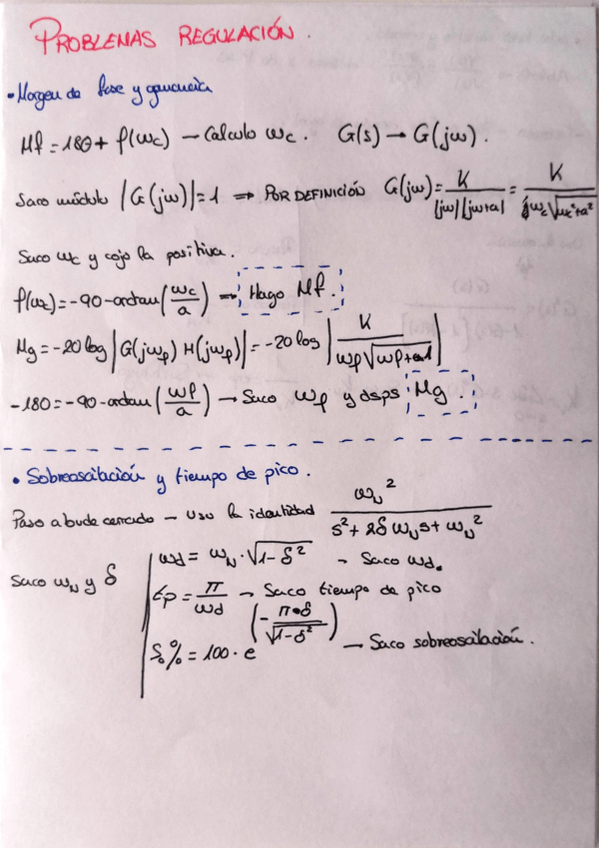 PROBLEMAS REGULACIÓN.
• Margen de fase y ganancia
Mf = 180 + φ(ωc) – Calculo ωc. G(s) → G(jω).
Saco módulo |G(jω)| = 1 ⇒ POR DEFINICIÓN G(jω) = K / |jω| |jω+a| = K / jωc √ωc²+a²
Saco ωc y cojo la positiva.
φ(ωc) = -90 - arctan(ωc/a) → Hago Mf.
Mg = -20 log |G(jωφ) H(jωφ)| = -20 log |K / ωφ √ωφ+a|
-180 = -90 - arctan(ωφ/a) → Saco ωφ y dsps Mg.
• Sobreoscilación y tiempo de pico.
Paso a bucle cerrado – Uso la identidad ωN² / s² + 2δ ωN s + ωN²
Saco ωN y δ
ωd = ωN · √1-δ² – Saco ωd.
tp = π/ωd → Saco tiempo de pico
So% = 100 · e^(-π·δ/√1-δ²) — Saco sobreoscilación.